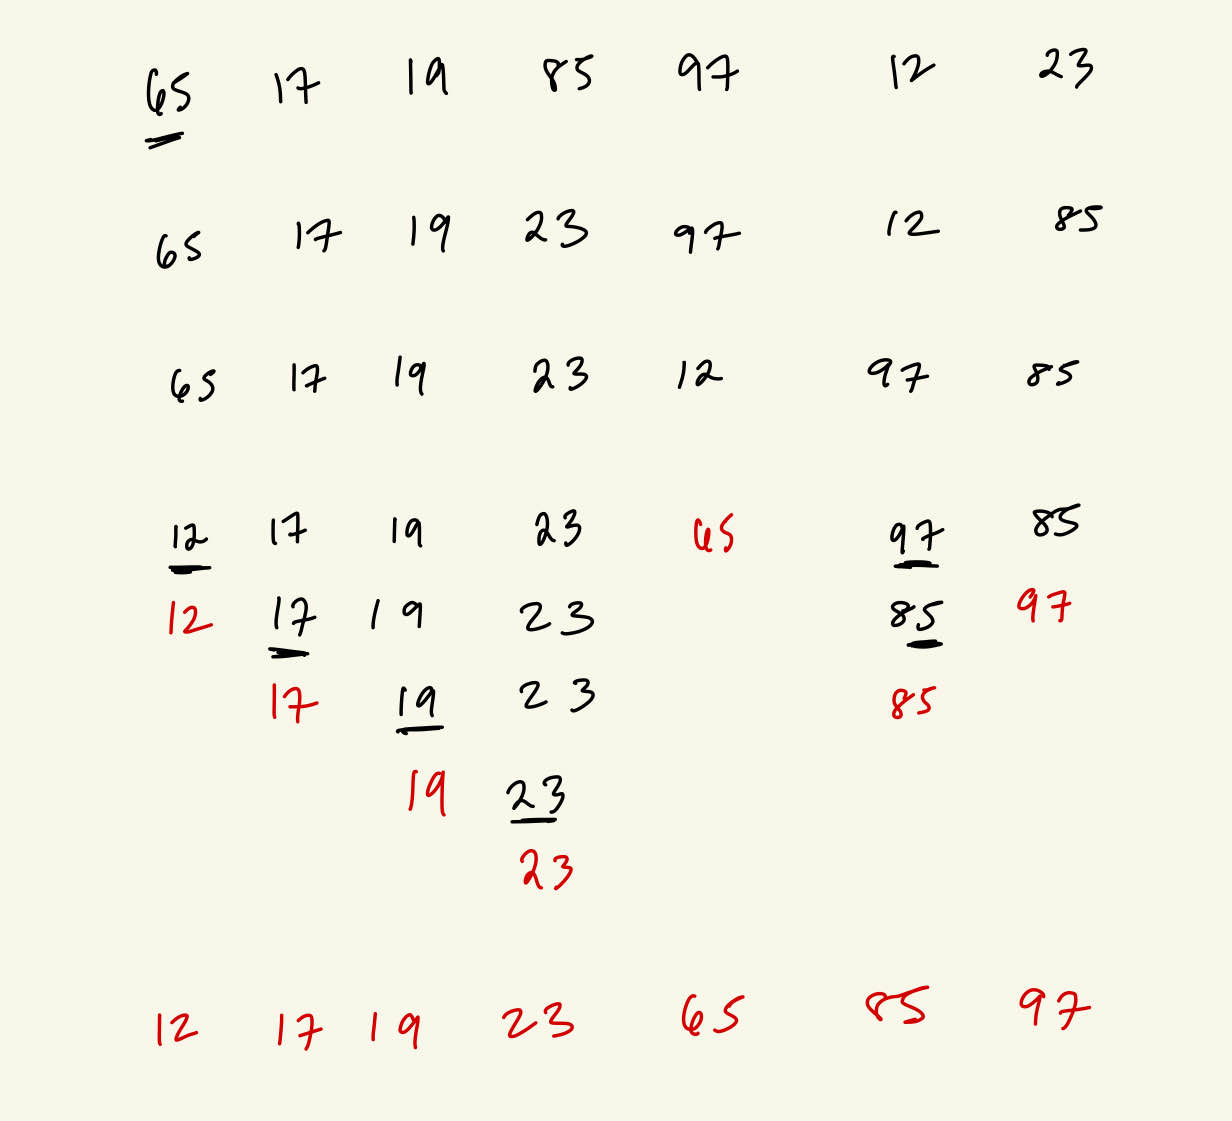 65 17 19 85 97 12 23
65 17 19 23 97 12 85
65 17 19 23 12 97 85
12 17 19 23 65 97 85
12 17 19 23 85 97
17 19 23 85
19 23
23
12 17 19 23 65 85 97